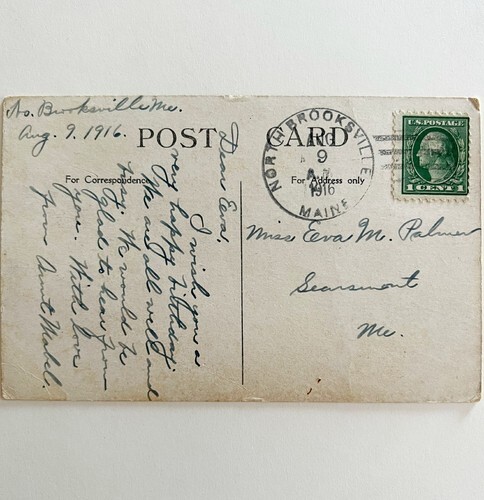 No. Brooksville Me.
Aug. 9. 1916.
POST CARD
For Correspondence
For Address only
Dear Eeva,
I wish you a
very happy birthday
We are all well and
busy. We would be
glad to hear from
you. With love
from Aunt Mabel.
NORTH BROOKSVILLE
AUG
9
A.M.
1916
MAINE
U.S. POSTAGE
1 CENT 1
Miss Eeva M. Palmer
Searsmont
Me.